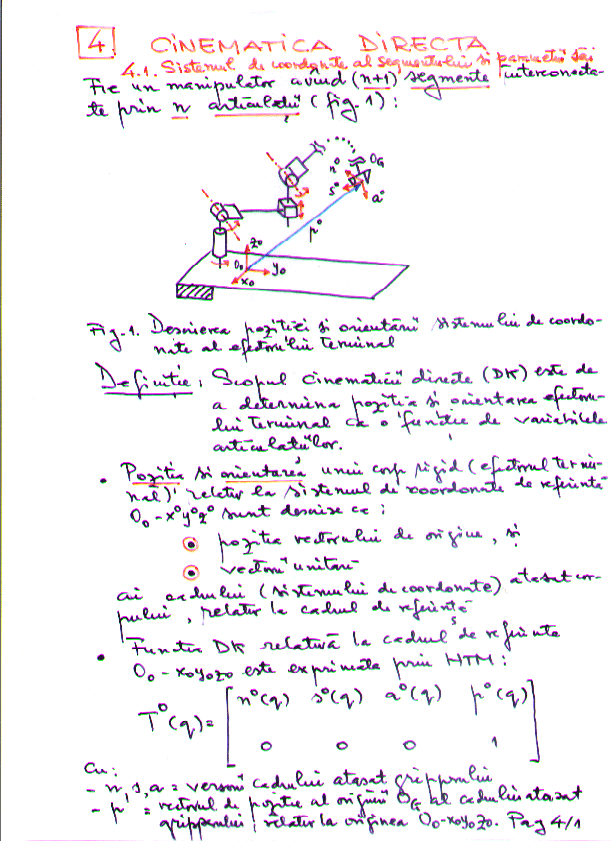 4 CINEMATICA DIRECTA
4.1. Sistemul de coordonate al segmentului si parametrii săi
Fie un manipulator având (n+1) segmente interconecta-
te prin n articulații (fig. 1):
n° O_G
s° a°
p°
z₀
O₀ y₀
x₀
Fig. 1. Descrierea poziției și orientării sistemului de coordo-
nate al efectorului terminal
Definiție: Scopul cinematicii directe (DK) este de
a determina poziția și orientarea efectoru-
lui terminal ca o funcție de variabilele
articulațiilor.
• Poziția si orientarea unui corp rigid (efectorul termi-
nal) relativ la sistemul de coordonate de referință
O₀-x°y°z° sunt descrise ca:
• poziția vectorului de origine, și
• vectorii unitari
ai cadrului (sistemului de coordonate) atașat cor-
pului, relativ la cadrul de referință
• Funcția DK relativă la cadrul de referință
O₀-x₀y₀z₀ este exprimată prin HTM:
T°(q)= [n°(q) s°(q) a°(q) p°(q)
0 0 0 1]
Cu:
- n, s, a = versorii cadrului atașat gripperului
- p = vectorul de poziție al originii O_G al cadrului atașat
gripperului, relativ la originea O₀-x₀y₀z₀. Pag 4/1